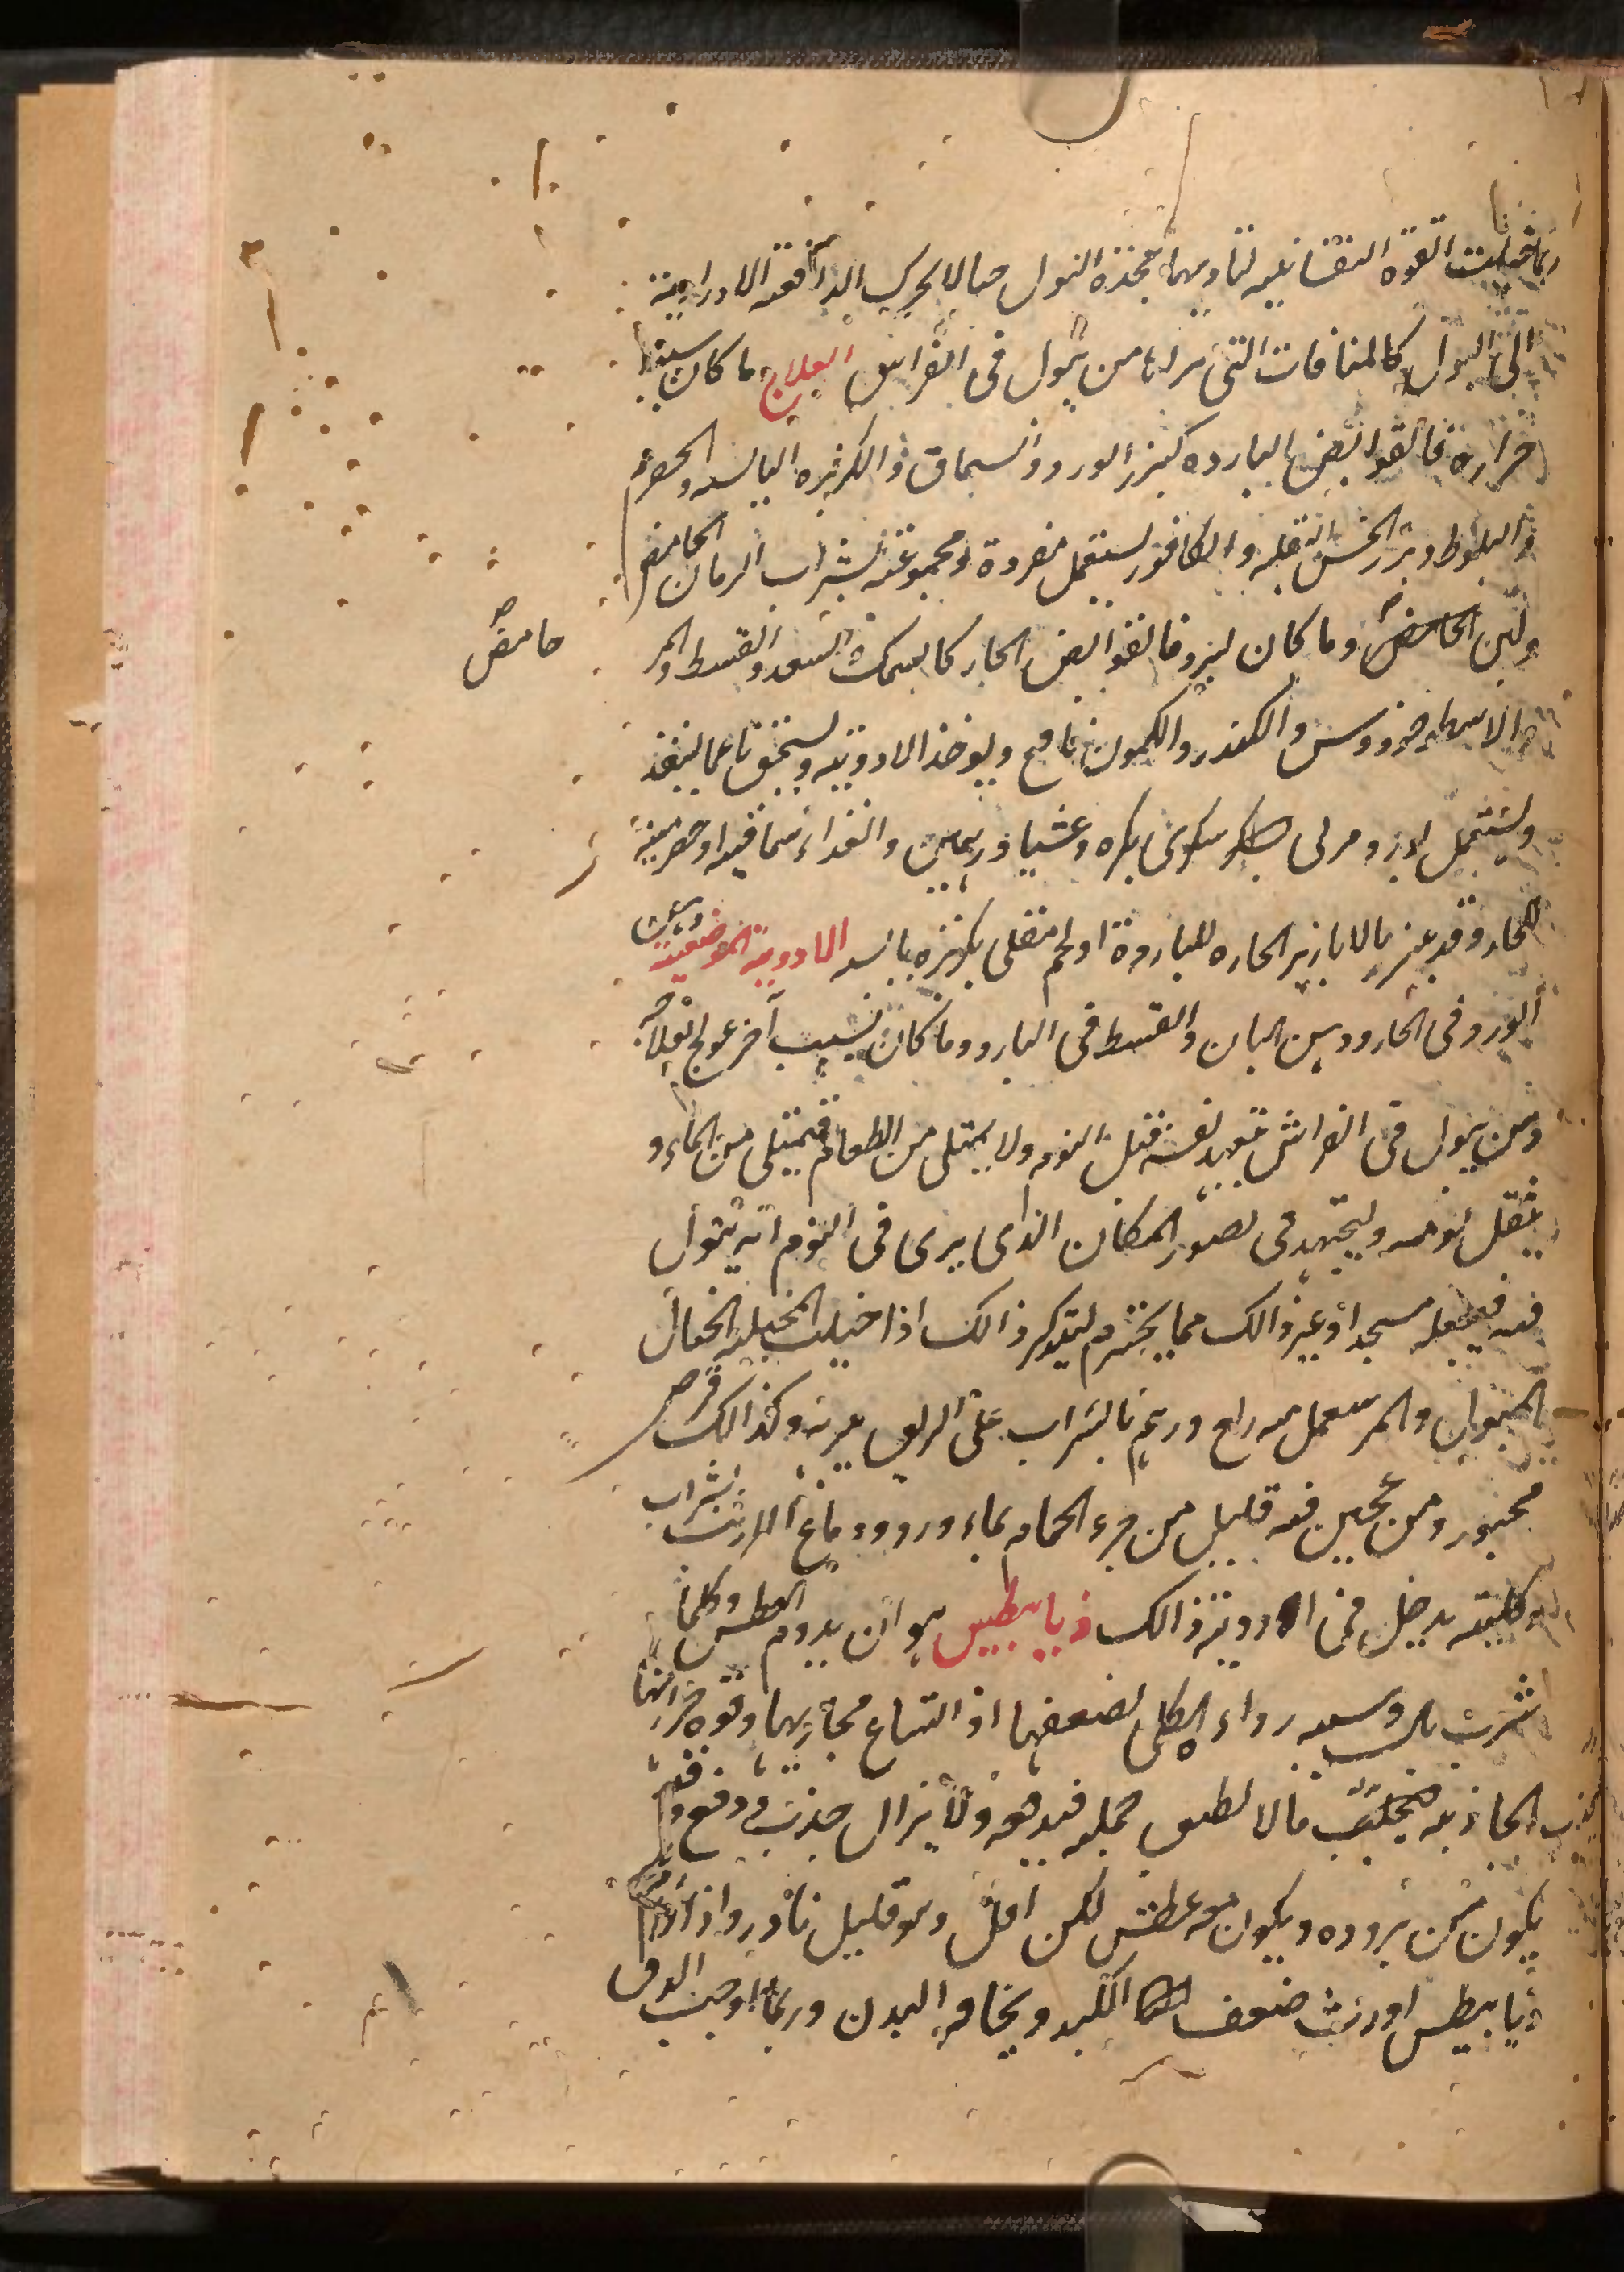 ربما خيلت القوة النفسانيه لتأديها بحدة البول خيالا يحرك الدافعة الاراديه
الى البول كالمنامات التى يراها من يبول فى الفراش العلاج ما كان سببه
حرارة فالقوابض البارده كبزر الورد والسماق والكزبره اليابسه والحصرم
والبلوط وبزر الخس البقله والكافور يستعمل مفردة ومجموعة بشراب الرمان الحامض
ولبن الحامض وما كان لبرد فالقوابض الحار كالسك السعد والقسط والمر
حامض
والكندر والكمون نافع ويوخذ الادويه ويسحق ناعما لينفذ
ويستعمل بكره وعشيا درهمين والغداء سماقيه او حصرميه
للحار وقد بالابازير الحاره للبارده او لحم مقلى بكزبره يابسه الادويه الموضعية دهن
الورد فى الحار ودهن البان والقسط فى البارد وما كان لسبب آخر عولج بعلاجه
ومن يبول فى الفراش نفسه قبل النوم ولا يمتلى من الطعام فيمتلى من الماء و
يثقل نومه وليجتهد فى تصور المكان الذى يرى فى النوم انه يبول
فيه فيجعله مسجدا او غير ذالك مما يحترم ليتذكر ذالك اذا خيلت المخيله الخيال
والمر درهم بالشراب على الريق وكذالك قرص
من عجين فيه قليل من خرء الحمام بماء ورد ودماغ الارنب بشراب
وكليته يدخل فى ادويته ذالك ذيابيطس هو ان يدوم العطش وكلما
شرب بال وسببه رداء الكلى لضعفها او اتساع مجاريها وقوة حرارتها
الجاذبه ما لا تطيق حمله فيدفعه ولا يزال جذب ودفع وقد
يكون من بروده ويكون معه عطش لكن اقل وهو قليل نادر واذا
ذيابيطس اورث ضعف الكبد ونحافه البدن وربما اوجب الدق